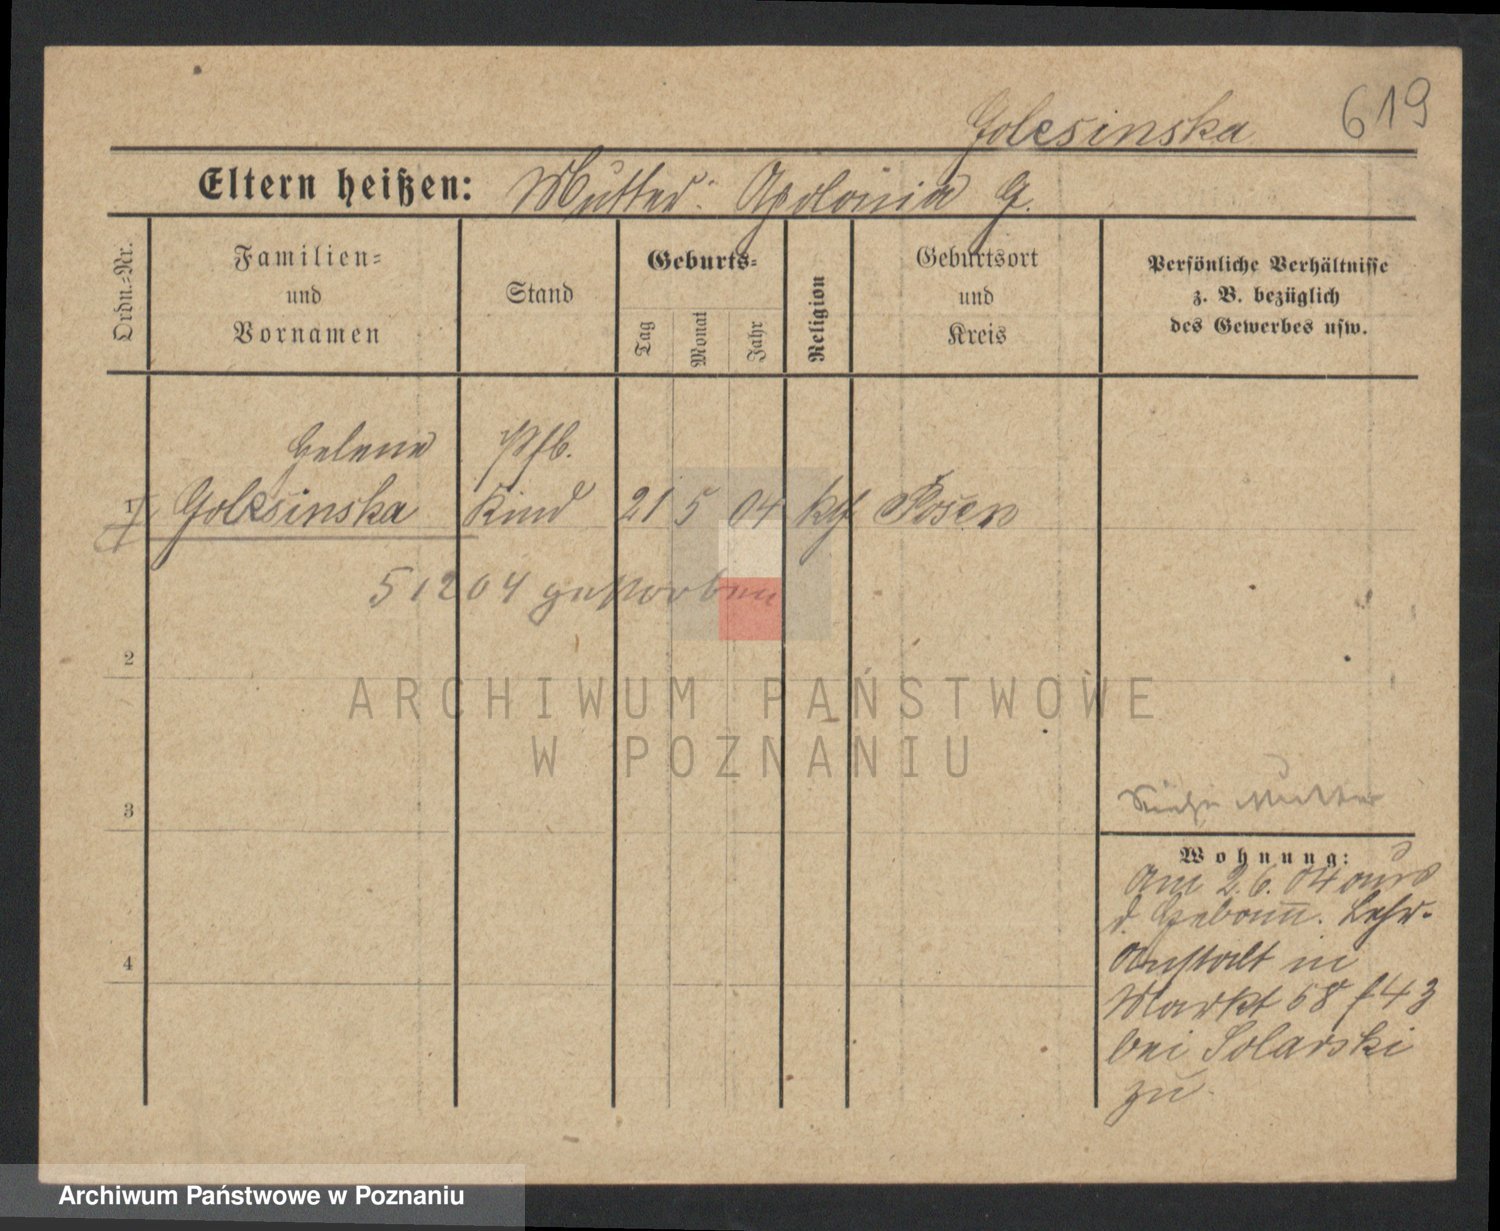 Golesinska
619
Eltern heißen: Mutter: Apolonia G.
Ordn.-Nr.
Familien=
und
Vornamen
Stand
Geburts=
Tag
Monat
Jahr
Religion
Geburtsort
und
Kreis
Persönliche Verhältnisse
z. B. bezüglich
des Gewerbes usw.
Helene Pfb.
1 Golesinska Kind 21 5 04 kgf Posen
5 12 04 gestorben
2
ARCHIWUM PAŃSTWOWE
W POZNANIU
3
Siehe Mutter
Wohnung:
Am 2.6.04 aus
d. Hebamm. Lehr-
anstalt in
Markt 58 f 43
bei Solarski
zu
4
Archiwum Państwowe w Poznaniu